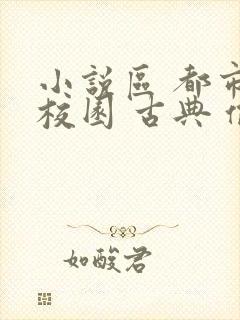 小說區 都市
校園 古典
如酸君